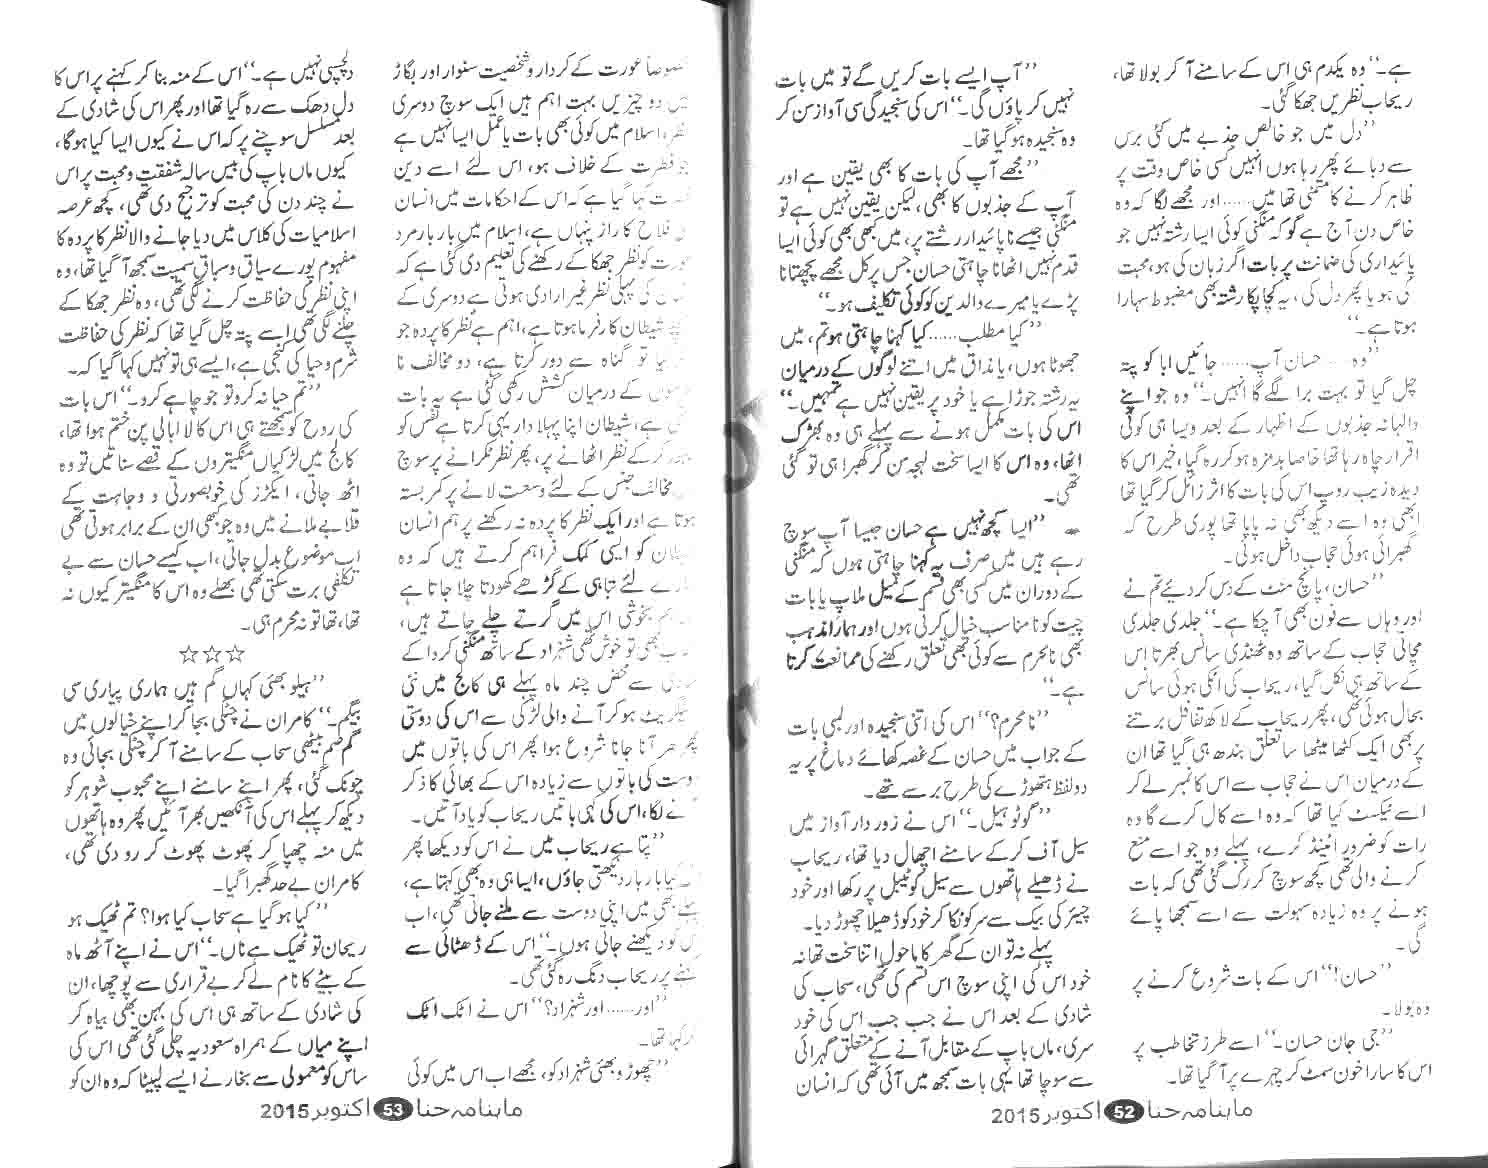 ہے۔‘‘ وہ یکدم ہی اس کے سامنے آ کر بولا تھا،
ریحاب نظریں جھکا گئی۔
’’دل میں جو خالص جذبے میں کئی برس
سے دبائے پھر رہا ہوں انہیں کسی خاص وقت پر
ظاہر کرنے کا متمنی تھا میں...... اور مجھے لگا کہ وہ
خاص دن آج ہے گو کہ منگنی کوئی ایسا رشتہ نہیں جو
پائیداری کی ضمانت پر بات اگر زبان کی ہو، محبت
کی ہو یا پھر دل کی، یہ کچا پکا رشتہ بھی مضبوط سہارا
ہوتا ہے۔‘‘
’’وہ...... حسان آپ...... جائیں ابا کو پتہ
چل گیا تو بہت برا لگے گا انہیں۔‘‘ وہ جو اپنے
والہانہ جذبوں کے اظہار کے بعد ویسا ہی کوئی
اقرار چاہ رہا تھا خاصا بدمزہ ہو کر رہ گیا، خیر اس کا
دیدہ زیب روپ اس کی بات کا اثر زائل کر گیا تھا
ابھی وہ اسے دیکھ بھی نہ پایا تھا پوری طرح کہ
گھبرائی ہوئی حجاب داخل ہوئی۔
’’حسان، پانچ منٹ کے دس کر دئیے تم نے
اور وہاں سے فون بھی آ چکا ہے۔‘‘ جلدی جلدی
مچاتی حجاب کے ساتھ وہ ٹھنڈی سانس بھرتا اس
کے ساتھ ہی نکل گیا، ریحاب کی اٹکی ہوئی سانس
بحال ہوئی تھی، پھر ریحاب کے لاکھ تغافل برتنے
پر بھی ایک کٹھا میٹھا سا تعلق بندھ ہی گیا تھا ان
کے درمیان اس نے حجاب سے اس کا نمبر لے کر
اسے ٹیکسٹ کیا تھا کہ وہ اسے کال کرے گا وہ
رات کو ضرور اٹینڈ کرے، پہلے وہ جو اسے منع
کرنے والی تھی کچھ سوچ کر رک گئی تھی کہ بات
ہونے پر وہ زیادہ سہولت سے اسے سمجھا پائے
گی۔
’’حسان!‘‘ اس کے بات شروع کرنے پر
وہ بولا۔
’’جی جان حسان۔‘‘ اسے طرز تخاطب پر
اس کا سارا خون سمٹ کر چہرے پر آ گیا تھا۔
’’آپ ایسے بات کریں گے تو میں بات
نہیں کر پاؤں گی۔‘‘ اس کی سنجیدگی سی آواز سن کر
وہ سنجیدہ ہو گیا تھا۔
’’مجھے آپ کی بات کا بھی یقین ہے اور
آپ کے جذبوں کا بھی، لیکن یقین نہیں ہے تو
منگنی جیسے ناپائیدار رشتے پر، میں کبھی بھی کوئی ایسا
قدم نہیں اٹھانا چاہتی حسان جس پر کل مجھے پچھتانا
پڑے یا میرے والدین کو کوئی تکلیف ہو۔‘‘
’’کیا مطلب...... کیا کہنا چاہتی ہو تم، میں
جھوٹا ہوں، یا مذاق میں اتنے لوگوں کے درمیان
یہ رشتہ جوڑا ہے یا خود پر یقین نہیں ہے تمہیں۔‘‘
اس کی بات مکمل ہونے سے پہلے ہی وہ بھڑک
اٹھا، وہ اس کا ایسا سخت لہجہ سن کر گھبرا ہی تو گئی
تھی۔
’’ایسا کچھ نہیں ہے حسان جیسا آپ سوچ
رہے ہیں میں صرف یہ کہنا چاہتی ہوں کہ منگنی
کے دوران میں کسی بھی قسم کے میل ملاپ یا بات
چیت کو نامناسب خیال کرتی ہوں اور ہمارا مذہب
بھی نامحرم سے کوئی بھی تعلق رکھنے کی ممانعت کرتا
ہے۔‘‘
’’نامحرم؟‘‘ اس کی اتنی سنجیدہ اور لمبی بات
کے جواب میں حسان کے غصہ کھائے دماغ پر یہ
دو لفظ ہتھوڑے کی طرح برسے تھے۔
’’گو ٹو ہیل۔‘‘ اس نے زور دار آواز میں
سیل آف کر کے سامنے اچھال دیا تھا، ریحاب
نے ڈھیلے ہاتھوں سے سیل کو ٹیبل پر رکھا اور خود
چیئر کی بیک سے سر کو ٹکا کر خود کو ڈھیلا چھوڑ دیا۔
پہلے نہ تو ان کے گھر کا ماحول اتنا سخت تھا نہ
خود اس کی اپنی سوچ اس قسم کی تھی، سحاب کی
شادی کے بعد اس نے جب جب اس کی خود
سری، ماں باپ کے مقابل آنے کے متعلق گہرائی
سے سوچا تھا یہی بات سمجھ میں آئی تھی کہ انسان
ماہنامہ حنا 52 اکتوبر 2015
خصوصاً عورت کے کردار و شخصیت سنوار اور بگاڑ
میں دو چیزیں بہت اہم ہیں ایک سوچ دوسری
نظر، اسلام میں کوئی بھی بات یا عمل ایسا نہیں ہے
جو فطرت کے خلاف ہو، اس لئے اسے دین
فطرت کہا گیا ہے کہ اس کے احکامات میں انسان
کی فلاح کا راز پنہاں ہے، اسلام میں بار بار مرد
عورت کو نظر جھکا کے رکھنے کی تعلیم دی گئی ہے کہ
انسان کی پہلی نظر غیر ارادی ہوتی ہے دوسری کے
شیطان کارفرما ہوتا ہے، اہم ہے نظر کا پردہ جو
تو گناہ سے دور کرتا ہے، دو مخالف نا
کے درمیان کشش رکھی گئی ہے یہ بات
ہے، شیطان اپنا پہلا وار یہی کرتا ہے نفس کو
کر کے نظر اٹھانے پر، پھر نظر ٹکرانے پر سوچ
مخالف جنس کے لئے وسعت لانے پر کمر بستہ
ہوتا ہے اور ایک نظر کا پردہ نہ رکھنے پر ہم انسان
شیطان کو ایسی کمک فراہم کرتے ہیں کہ وہ
ہمارے لئے تباہی کے گڑھے کھودتا چلا جاتا ہے
ہم بخوشی اس میں گرتے چلے جاتے ہیں،
بھی تو خوش تھی شہزاد کے ساتھ منگنی کروا کے
سے محض چند ماہ پہلے ہی کالج میں نئی
مائیگریٹ ہو کر آنے والی لڑکی سے اس کی دوستی
پھر گھر آنا جانا شروع ہوا پھر اس کی باتوں میں
دوست کی باتوں سے زیادہ اس کے بھائی کا ذکر
نے لگا، اس کی کہی باتیں ریحاب کو یاد آتیں۔
’’پتا ہے ریحاب میں نے اس کو دیکھا پھر
کیا بار بار دیکھتی جاؤں، ایسا ہی وہ بھی کہتا ہے،
پہلے بھی میں اپنی دوست سے ملنے جاتی تھی، اب
اس کو دیکھنے جاتی ہوں۔‘‘ اس کے ڈھٹائی سے
کہنے پر ریحاب دنگ رہ گئی تھی۔
’’اور...... اور شہزاد؟‘‘ اس نے اٹک اٹک
کر کہا تھا۔
’’چھوڑو بھئی شہزاد کو، مجھے اب اس میں کوئی
دلچسپی نہیں ہے۔‘‘ اس کے منہ بنا کر کہنے پر اس کا
دل دھک سے رہ گیا تھا اور پھر اس کی شادی کے
بعد مسلسل سوچنے پر کہ اس نے کیوں ایسا کیا ہوگا،
کیوں ماں باپ کی بیس سالہ شفقت و محبت پر اس
نے چند دن کی محبت کو ترجیح دی تھی، کچھ عرصہ
اسلامیات کی کلاس میں دیا جانے والا نظر کا پردہ کا
مفہوم پورے سیاق و سباق سمیت سمجھ آ گیا تھا، وہ
اپنی نظر کی حفاظت کرنے لگی تھی، وہ نظر جھکا کے
چلنے لگی تھی اسے پتہ چل گیا تھا کہ نظر کی حفاظت
شرم و حیا کی کنجی ہے، ایسے ہی تو نہیں کہا گیا کہ۔
’’تم حیا نہ کرو تو جو چاہے کرو۔‘‘ اس بات
کی روح کو سمجھتے ہی اس کا لاابالی پن ختم ہوا تھا،
کالج میں لڑکیاں منگیتروں کے قصے سناتیں تو وہ
اٹھ جاتی، ایکٹرز کی خوبصورتی و وجاہت کے
قلابے ملانے میں وہ جو کبھی ان کے برابر ہوتی تھی
اب موضوع بدل جاتی، اب کیسے حسان سے بے
تکلفی برت سکتی تھی بھلے وہ اس کا منگیتر کیوں نہ
تھا، تھا تو نہ محرم ہی۔
☆☆☆
’’ہیلو بھئی کہاں گم ہیں ہماری پیاری سی
بیگم۔‘‘ کامران نے چٹکی بجا کر اپنے خیالوں میں
گم صم بیٹھی سحاب کے سامنے آ کر چٹکی بجائی وہ
چونک گئی، پھر اپنے سامنے اپنے محبوب شوہر کو
دیکھ کر پہلے اس کی آنکھیں بھر آئیں پھر وہ ہاتھوں
میں منہ چھپا کر پھوٹ پھوٹ کر رو دی تھی،
کامران بے حد گھبرا گیا۔
’’کیا ہو گیا ہے سحاب کیا ہوا؟ تم ٹھیک ہو
ریحان تو ٹھیک ہے ناں۔‘‘ اس نے اپنے آٹھ ماہ
کے بیٹے کا نام لے کر بے قراری سے پوچھا، ان
کی شادی کے ساتھ ہی اس کی بہن بھی بیاہ کر
اپنے میاں کے ہمراہ سعودیہ چلی گئی تھی اس کی
ساس کو معمولی سے بخار نے ایسے لپیٹا کہ وہ ان کو
ماہنامہ حنا 53 اکتوبر 2015